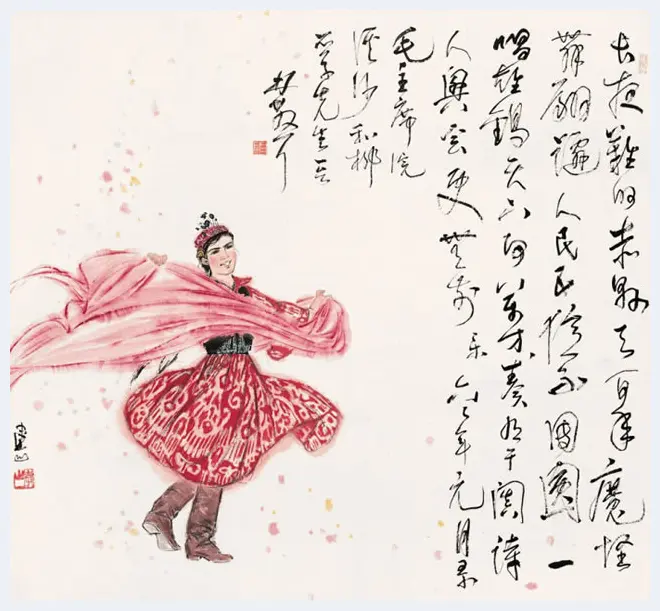 长夜难明赤县天百年魔怪
舞翩跹人民五亿不团圆一
唱雄鸡天下白万方奏有于阗诗
人興会更無前 乐 年元月录
毛主席浣
溪沙和柳
亚子先生一首
林散耳